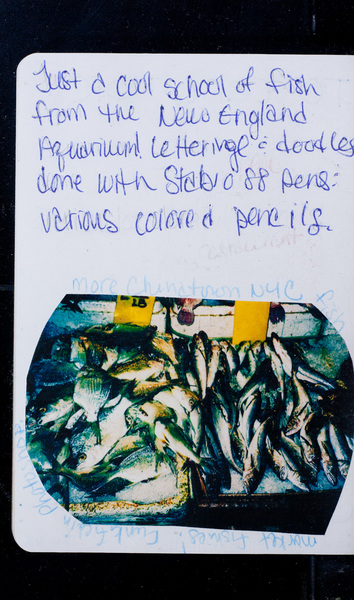 Just a cool school of fish
from the New England
Aquarium! Lettering & doodles
done with Stabilo 88 pens &
various colored pencils.
more Chinatown NYC fish
market fishes! Funkified in Photoshop
18